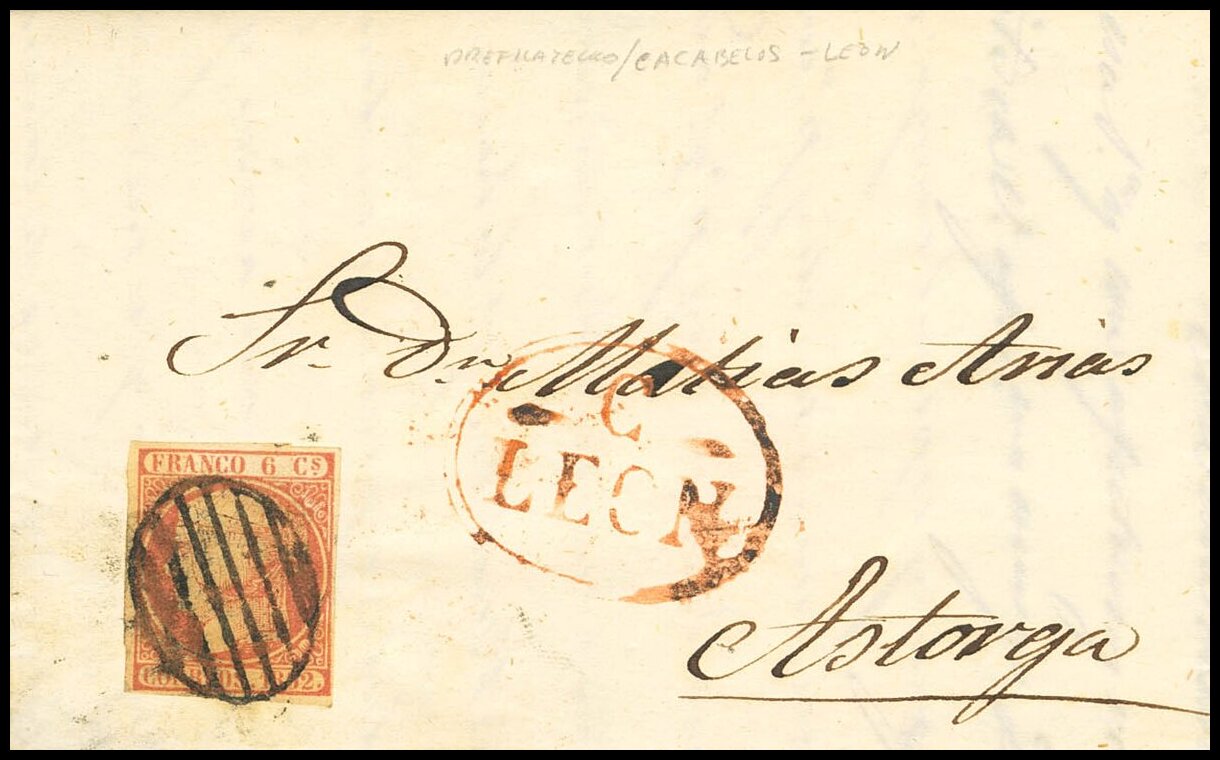 PREFILATELICO/CACABELOS - LEON
Sr. Dn. Matias Arias
C
LEON
FRANCO 6 Cs
CORREOS 1852
Astorga